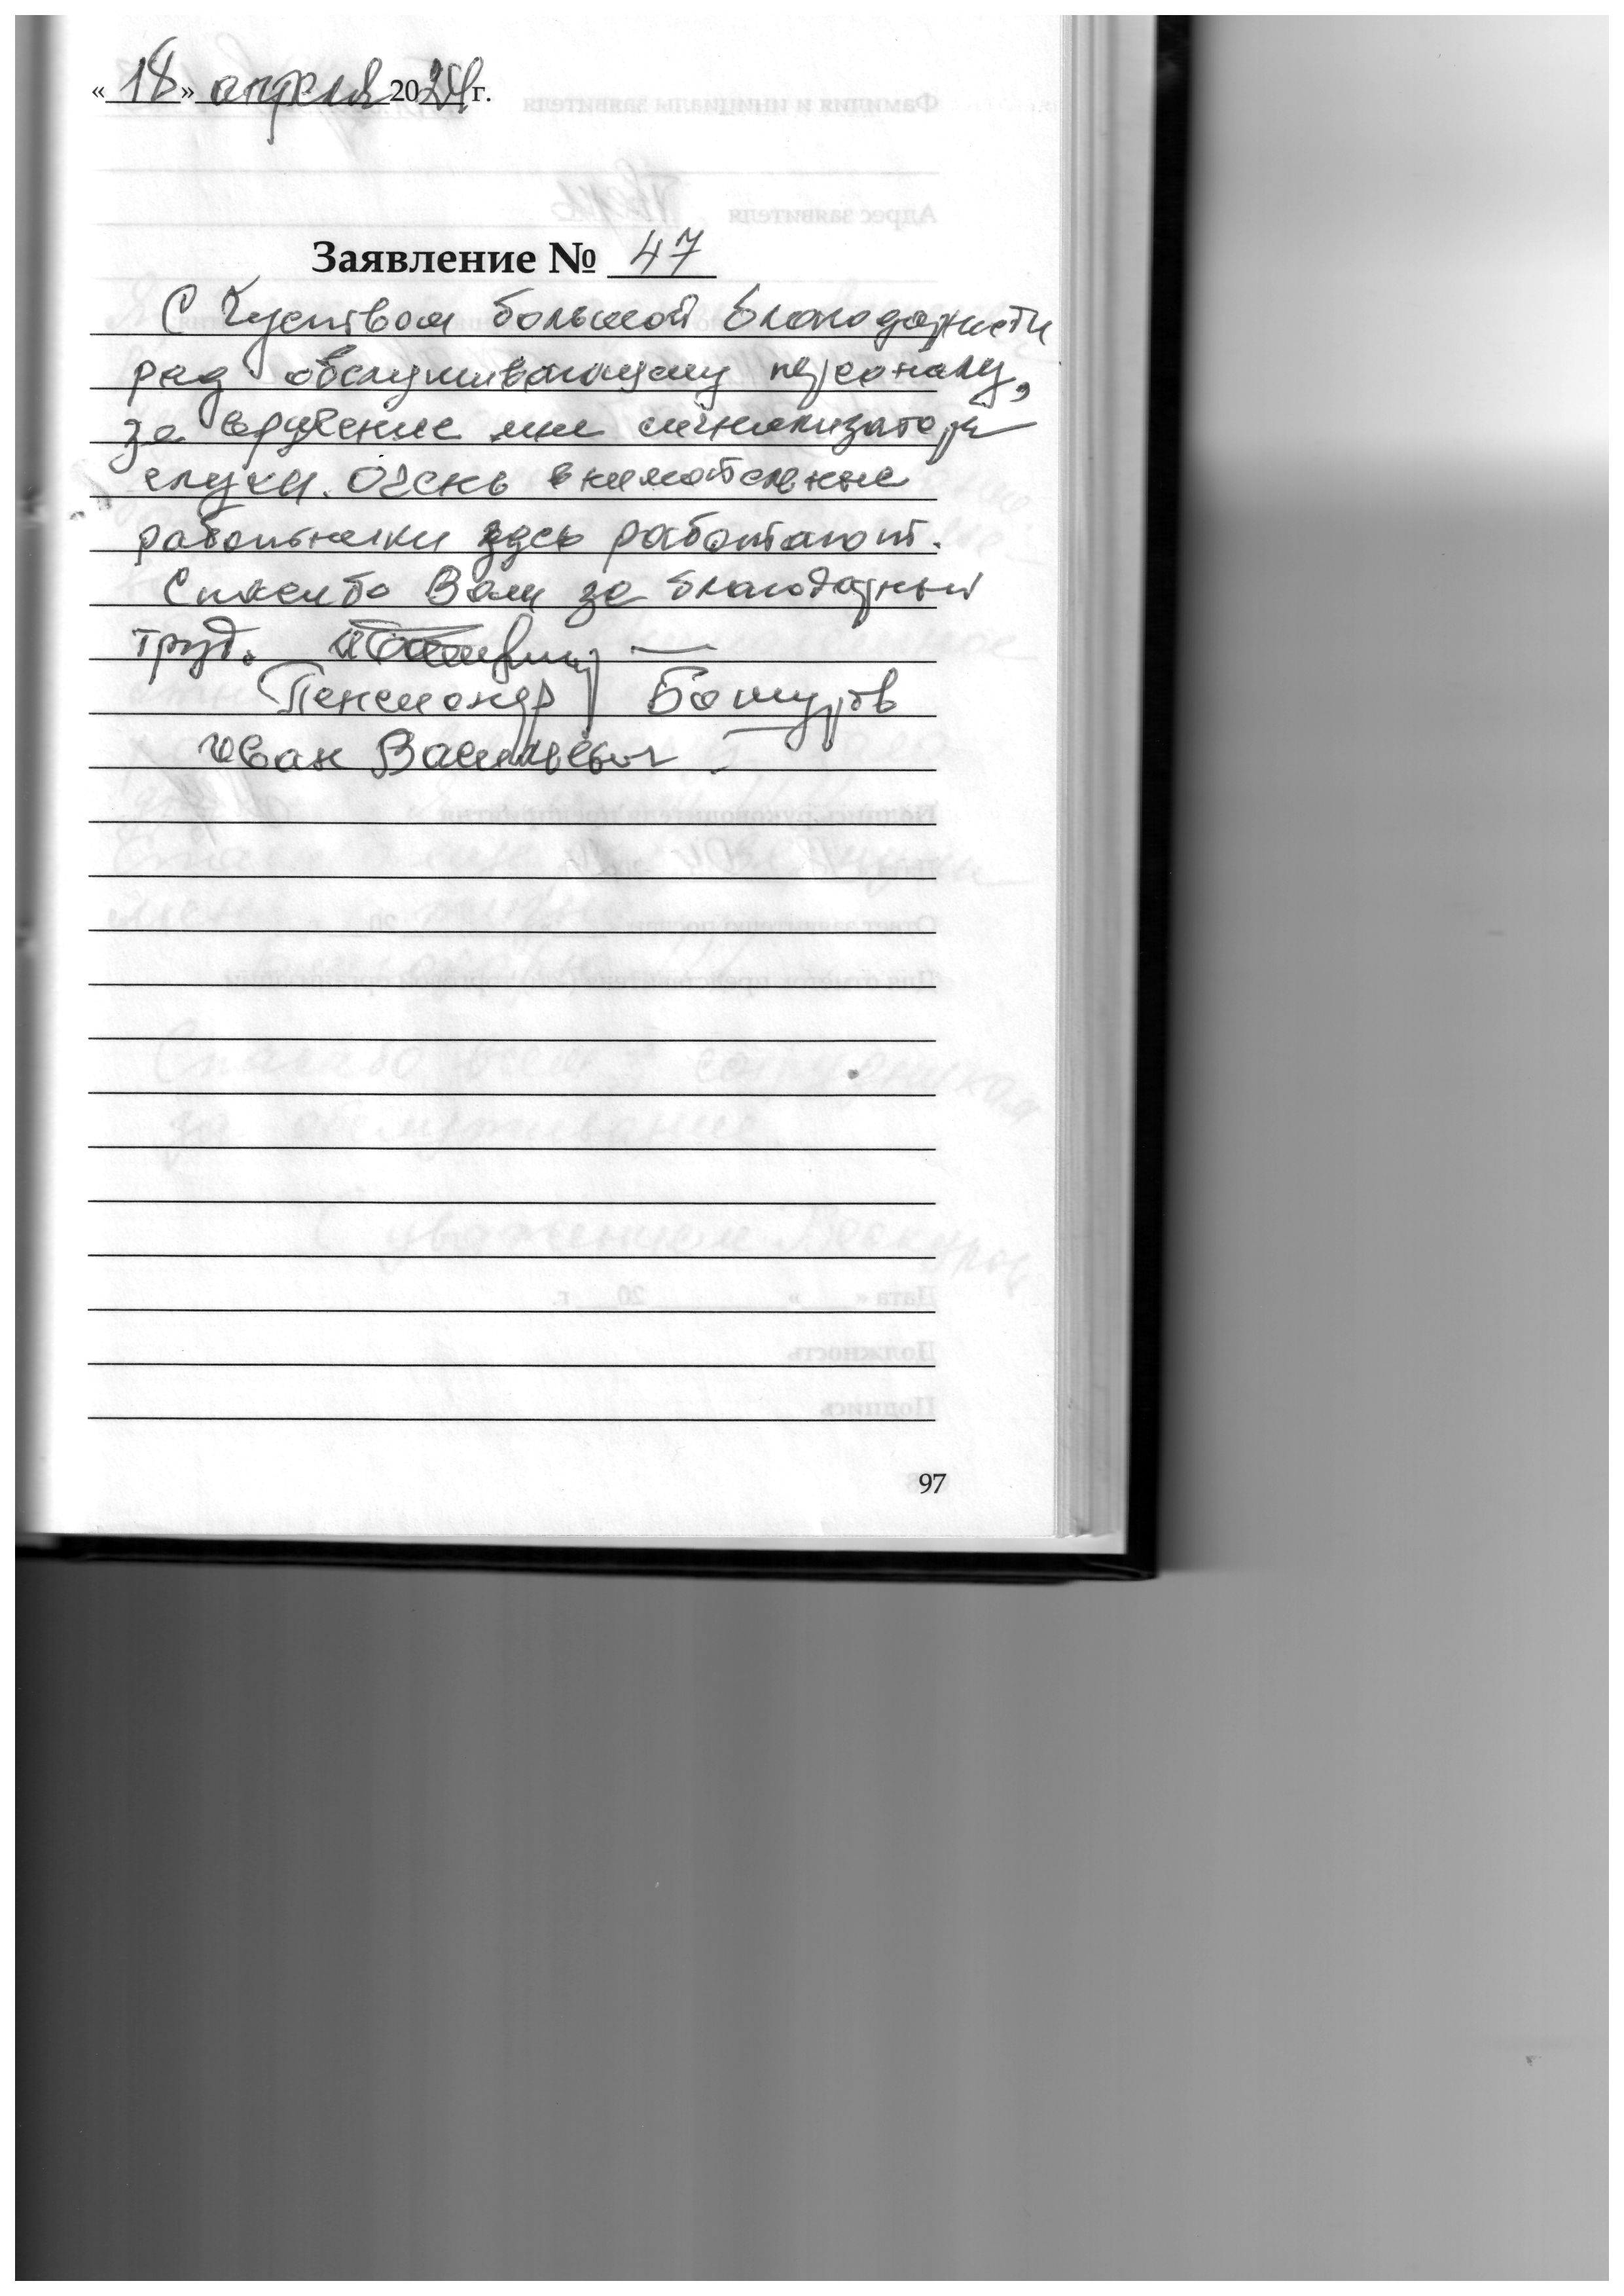 «18» апреля 2024 г.
Заявление № 47
С Чуством большой благодарности
рад обслуживающему персоналу,
за вручение мне сигнализатора
слуха. Очень внимательные
работники здесь работают.
Спасибо Вам за благодарный
труд.
Пенсионер
Иван Васильевич
97